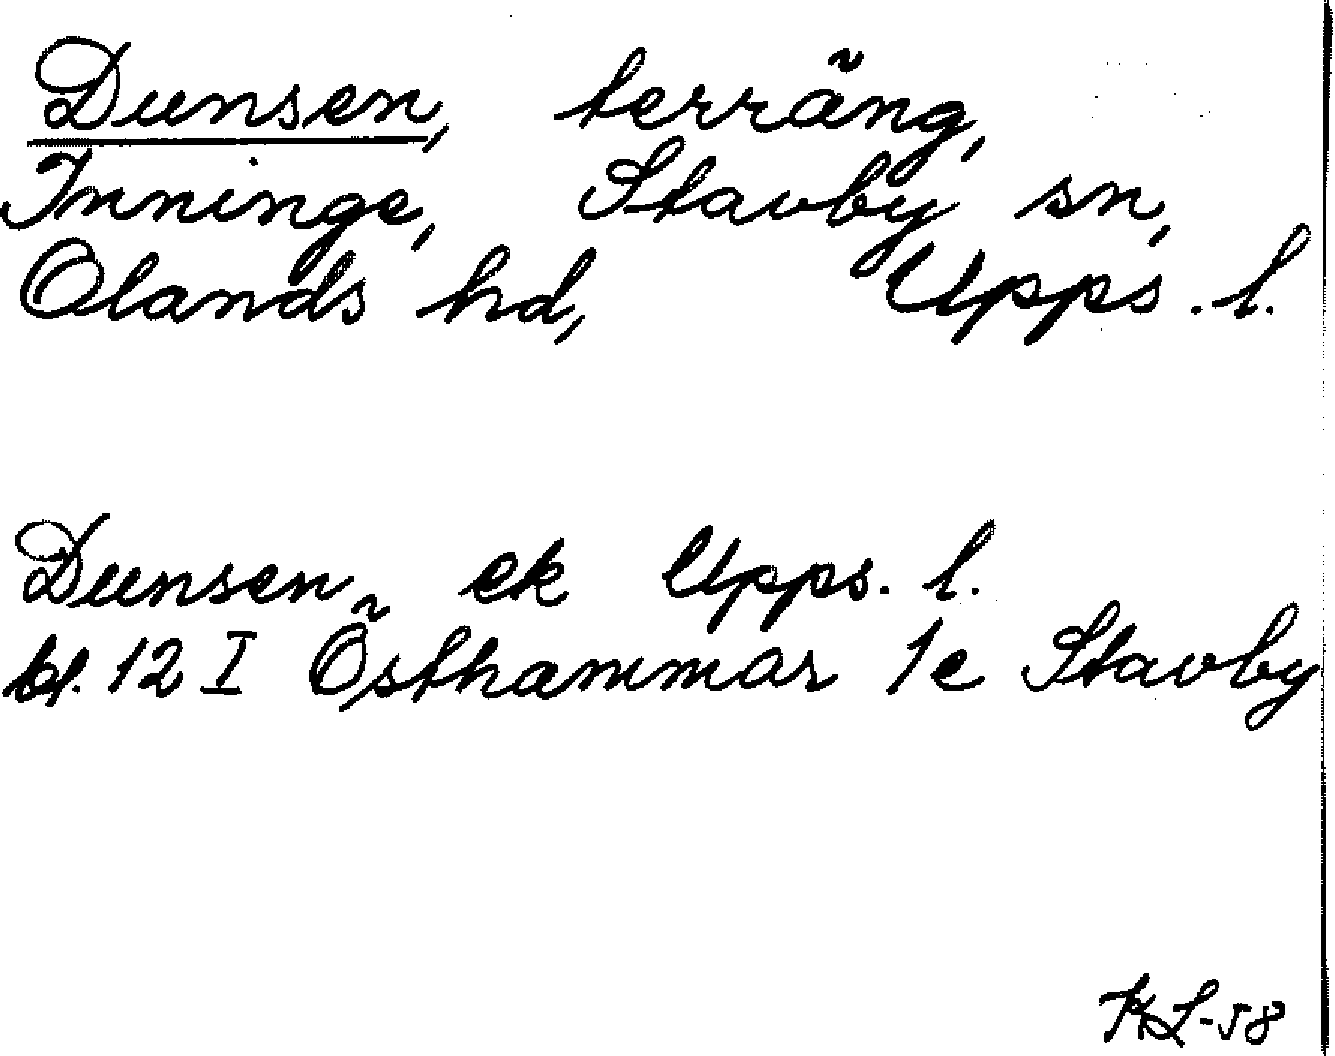 Dunsen, terräng,
Inninge, Stavby sn,
Olands hd, Upps. l.
Dunsen ek Upps. l.
bl. 12 I Östhammar 1e Stavby
KL-58